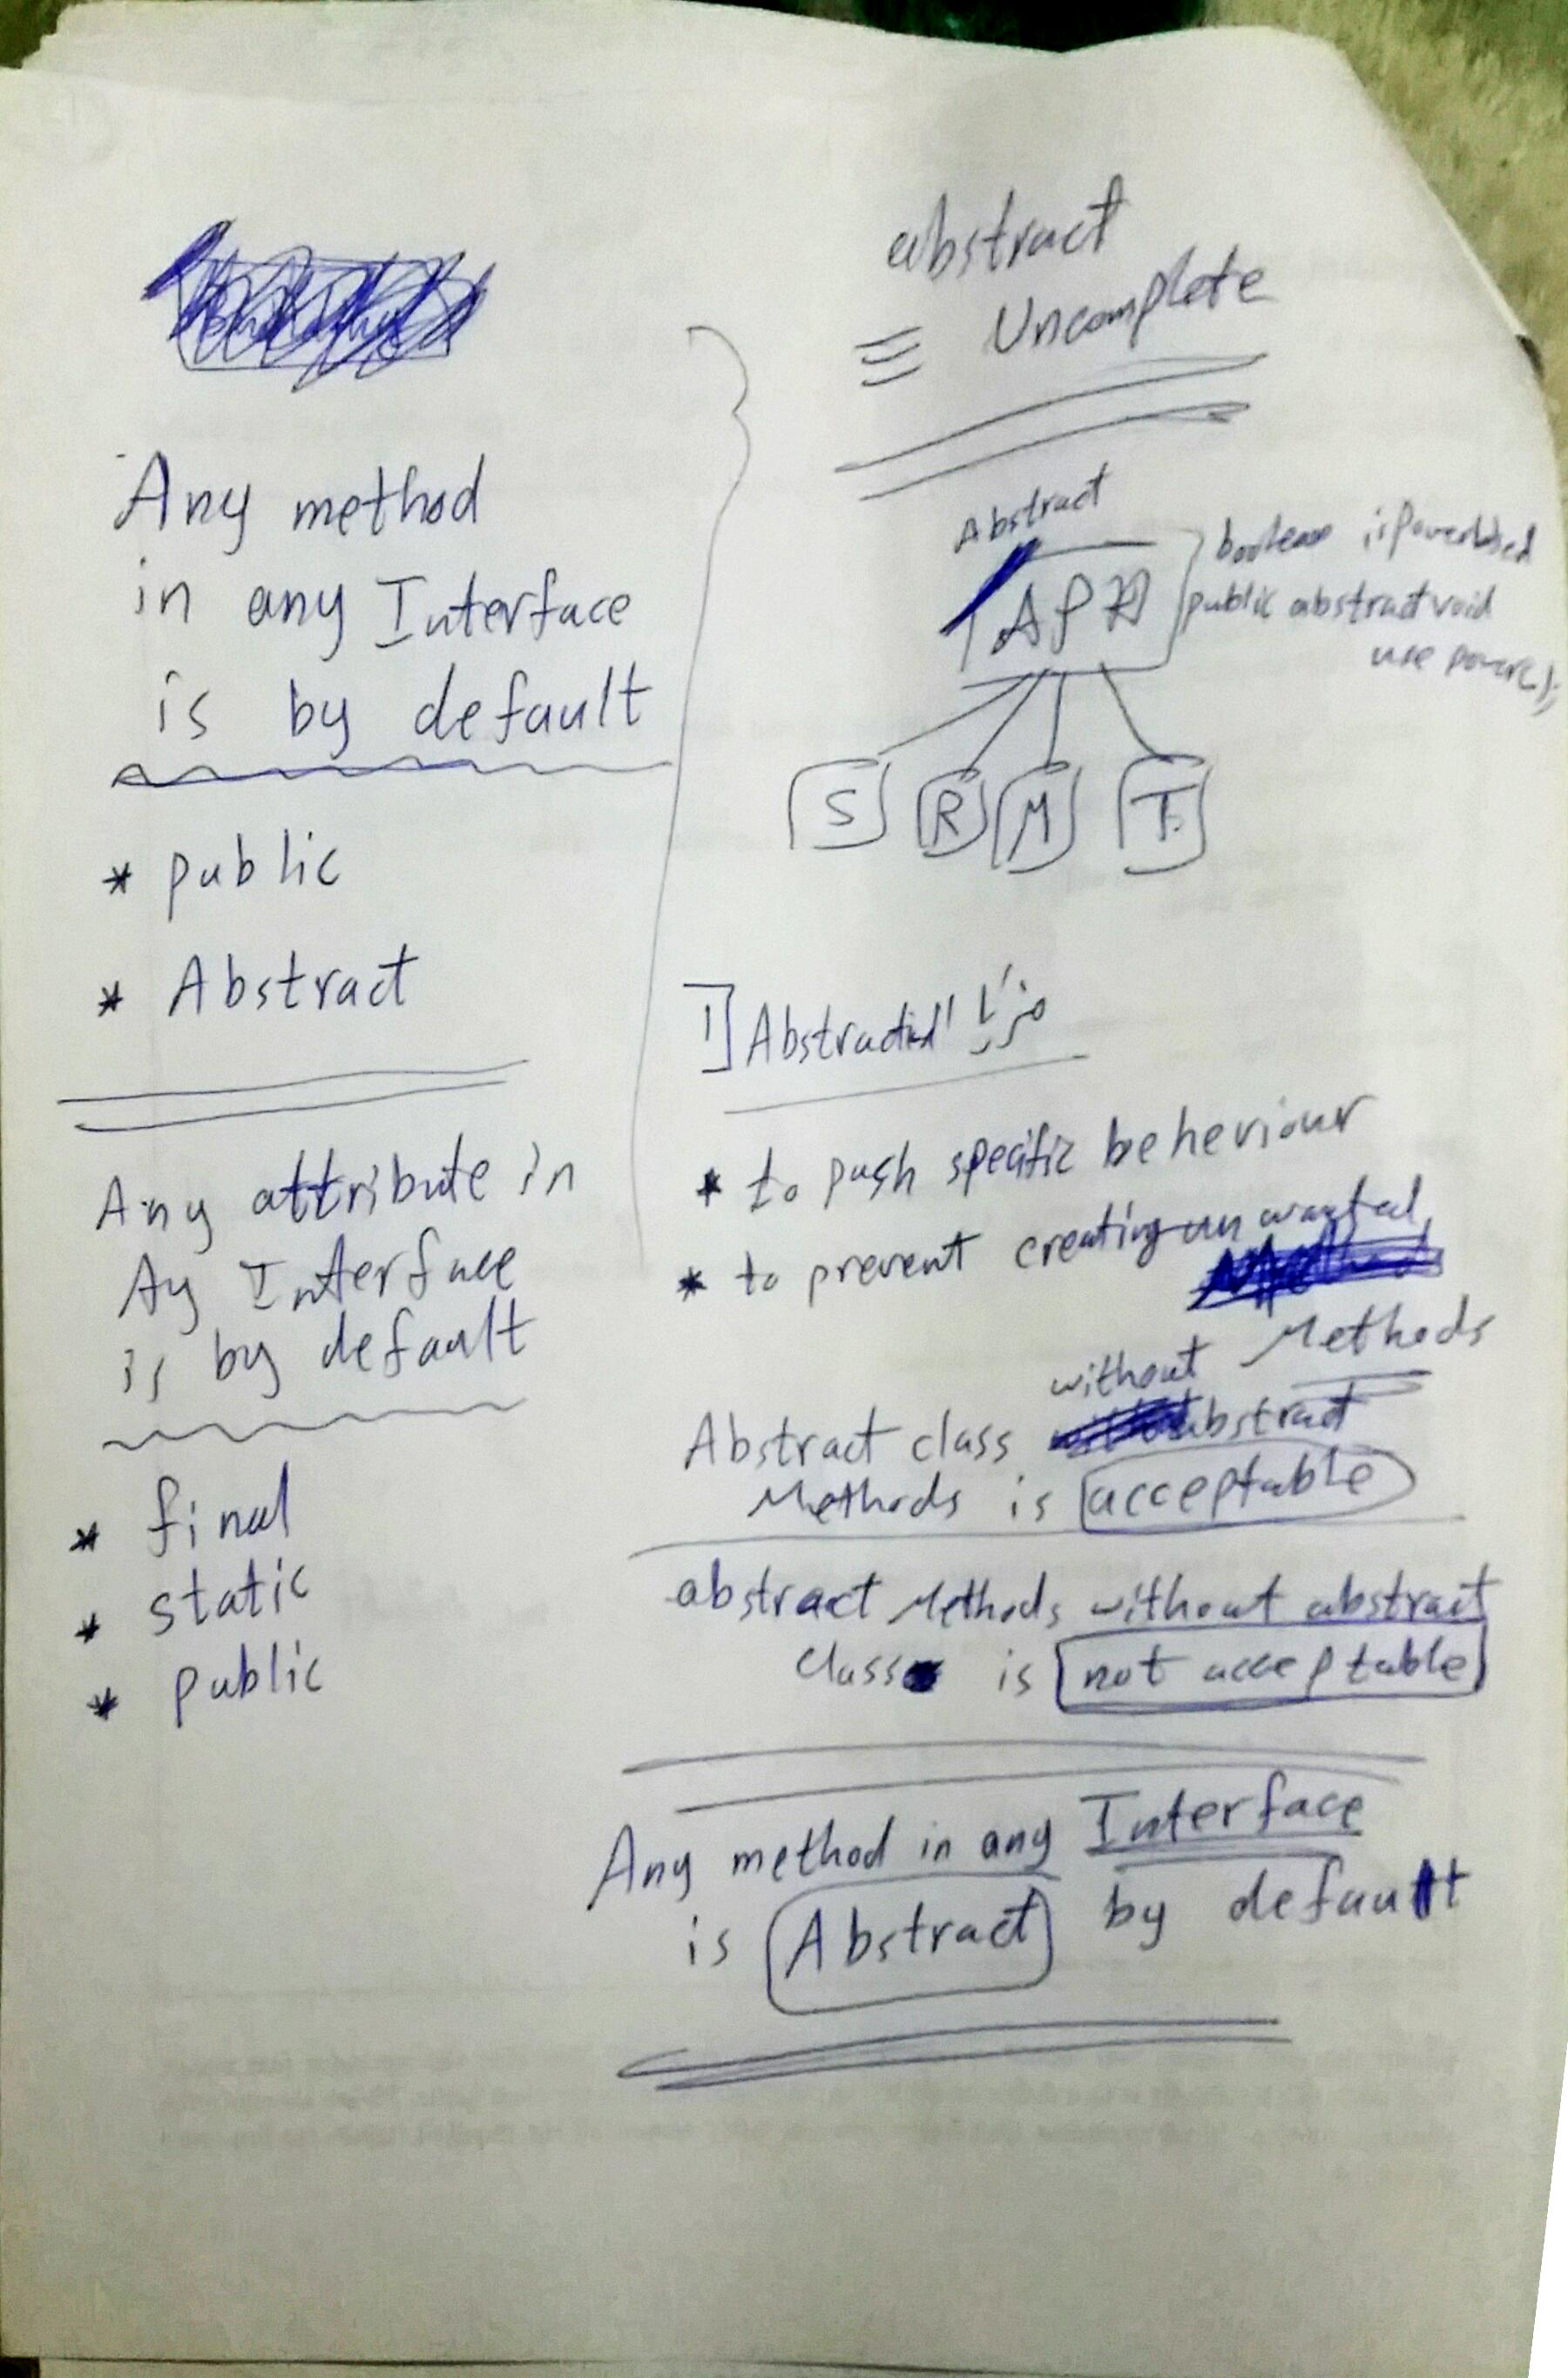 Any method
in any Interface
is by default
* public
* Abstract
Any attribute in
Ay Interface
is by default
* final
* static
* public
abstract
≡ Uncomplete
Abstract
boolean
public abstract void
use power();
S R M T
1] مزايا Abstraction
* to push specific beheviour
* to prevent creating un wanted
Methods
Abstract class without abstract
Methods is acceptable
abstract Methods without abstract
class is not acceptable
Any method in any Interface
is Abstract by default